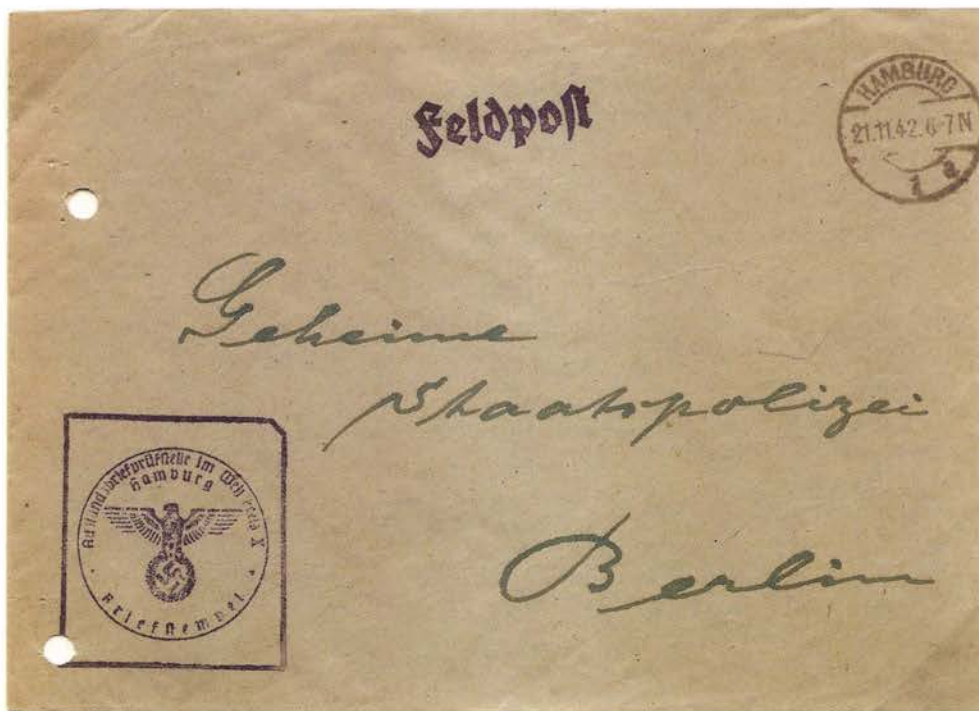 Feldpost
HAMBURG
21.11.42.6-7N
1 a
Geheime
Staatspolizei
Berlin
Auslandsbriefprüfstelle im Wehrkreis X
Hamburg
Briefstempel